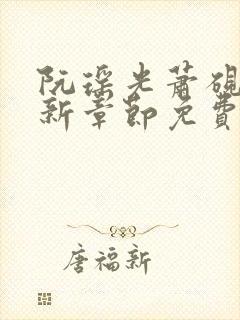 阮瑶光萧砚
新章節免費
唐福新